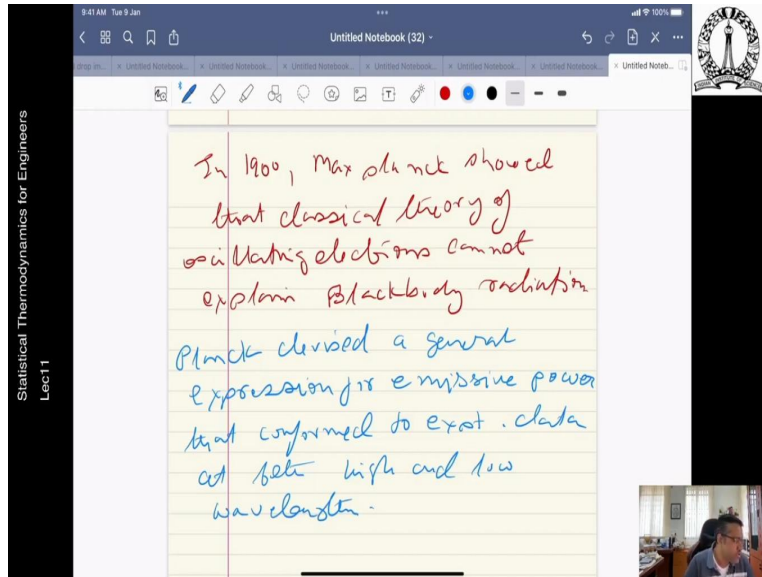 9:41 AM Tue 9 Jan
100%
Untitled Notebook (32)
drop im... × Untitled Notebook... × Untitled Notebook... × Untitled Notebook... × Untitled Notebook... × Untitled Notebook... × Untitled Notebook... × Untitled Noteb...
Statistical Thermodynamics for Engineers
Lec11
In 1900, Max planck showed
that classical theory of
oscillating electrons cannot
explain Blackbody radiation
Planck devised a general
expression for emissive power
that conformed to expt. data
at both high and low
wavelengths.